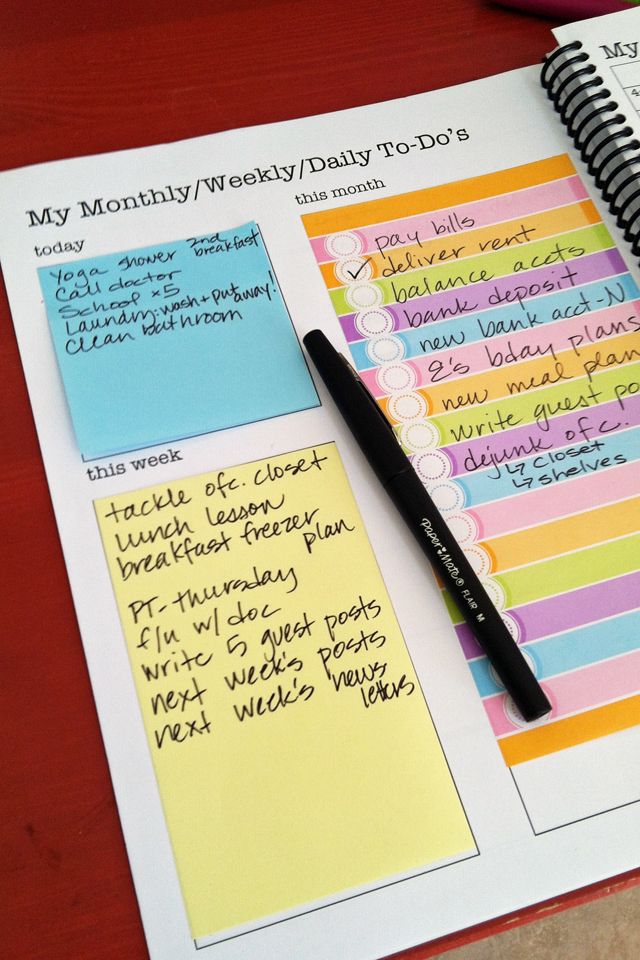 My Monthly/Weekly/Daily To-Do's
today
Yoga shower 2nd breakfast
Call doctor
School x5
Laundry: wash + put away!
Clean bathroom
this week
tackle ofc. closet
lunch lesson
breakfast freezer
plan
PT-thursday
f/u w/ doc
write 5 guest posts
next week's posts
next week's news
letters
this month
pay bills
✓ deliver rent
balance accts
bank deposit
new bank acct-N
E's bday plans
new meal plan
write guest po
dejunk ofc.
↳ closet
↳ shelves
Paper Mate® FLAIR M
My